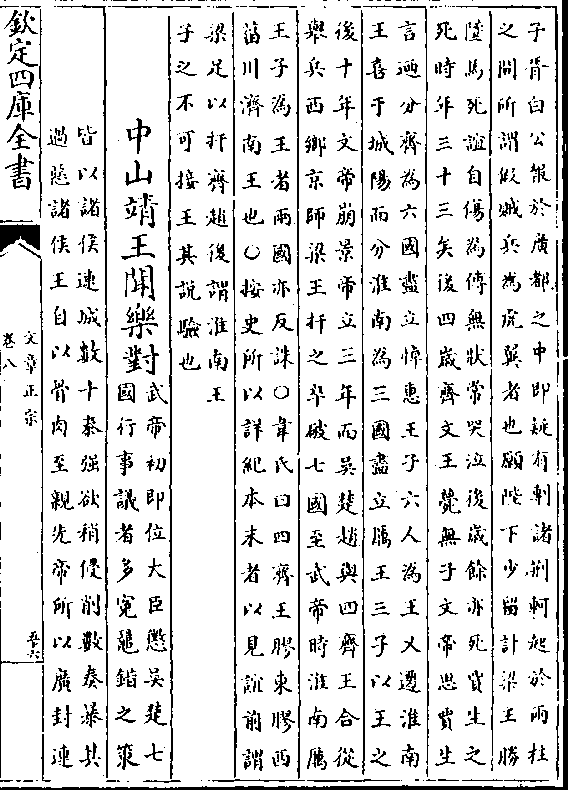 子胥白公報於廣都之中即疑有剸諸荆軻起於兩柱
之間所謂假賊兵為虎翼者也願陛下少留計梁王勝
墜馬死誼自傷為傅無狀常哭泣後歲餘亦死賈生之
死時年三十三矣後四歲齊文王薨無子文帝思賈生
言廼分齊為六國盡立悼惠王子六人為王又遷淮南
王喜于城陽而分淮南為三國盡立厲王三子以王之
後十年文帝崩景帝立三年而吳楚趙與四齊王合從
舉兵西鄉京師梁王扞之卒破七國至武帝時淮南厲
王子為王者兩國亦反誅○韋氏曰四齊王膠東膠西
菑川濟南王也○按史所以詳紀本末者以見誼前謂
梁足以扞齊趙後謂淮南王
子之不可接王其説驗也
中山靖王聞樂對
武帝初即位大臣懲吳楚七
國行事議者多寃鼂錯之策
皆以諸侯連城數十泰强欲稍侵削數奏暴其
過惡諸侯王自以骨肉至親先帝所以廣封連
欽定四庫全書
文章正宗
卷八
五十六